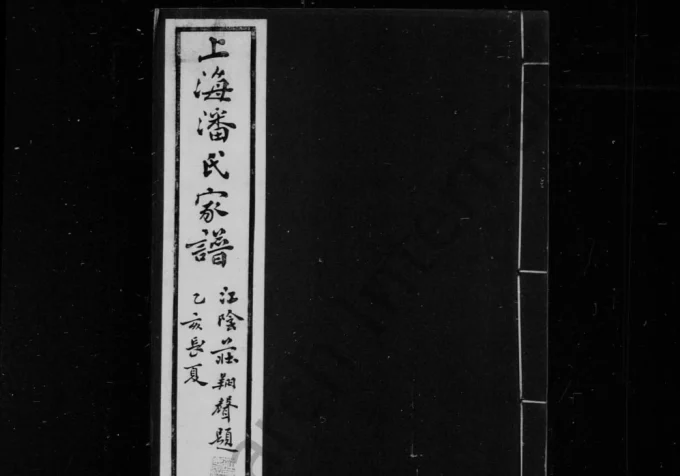 上海潘氏家譜
江陰莊翔聲題
乙亥長夏